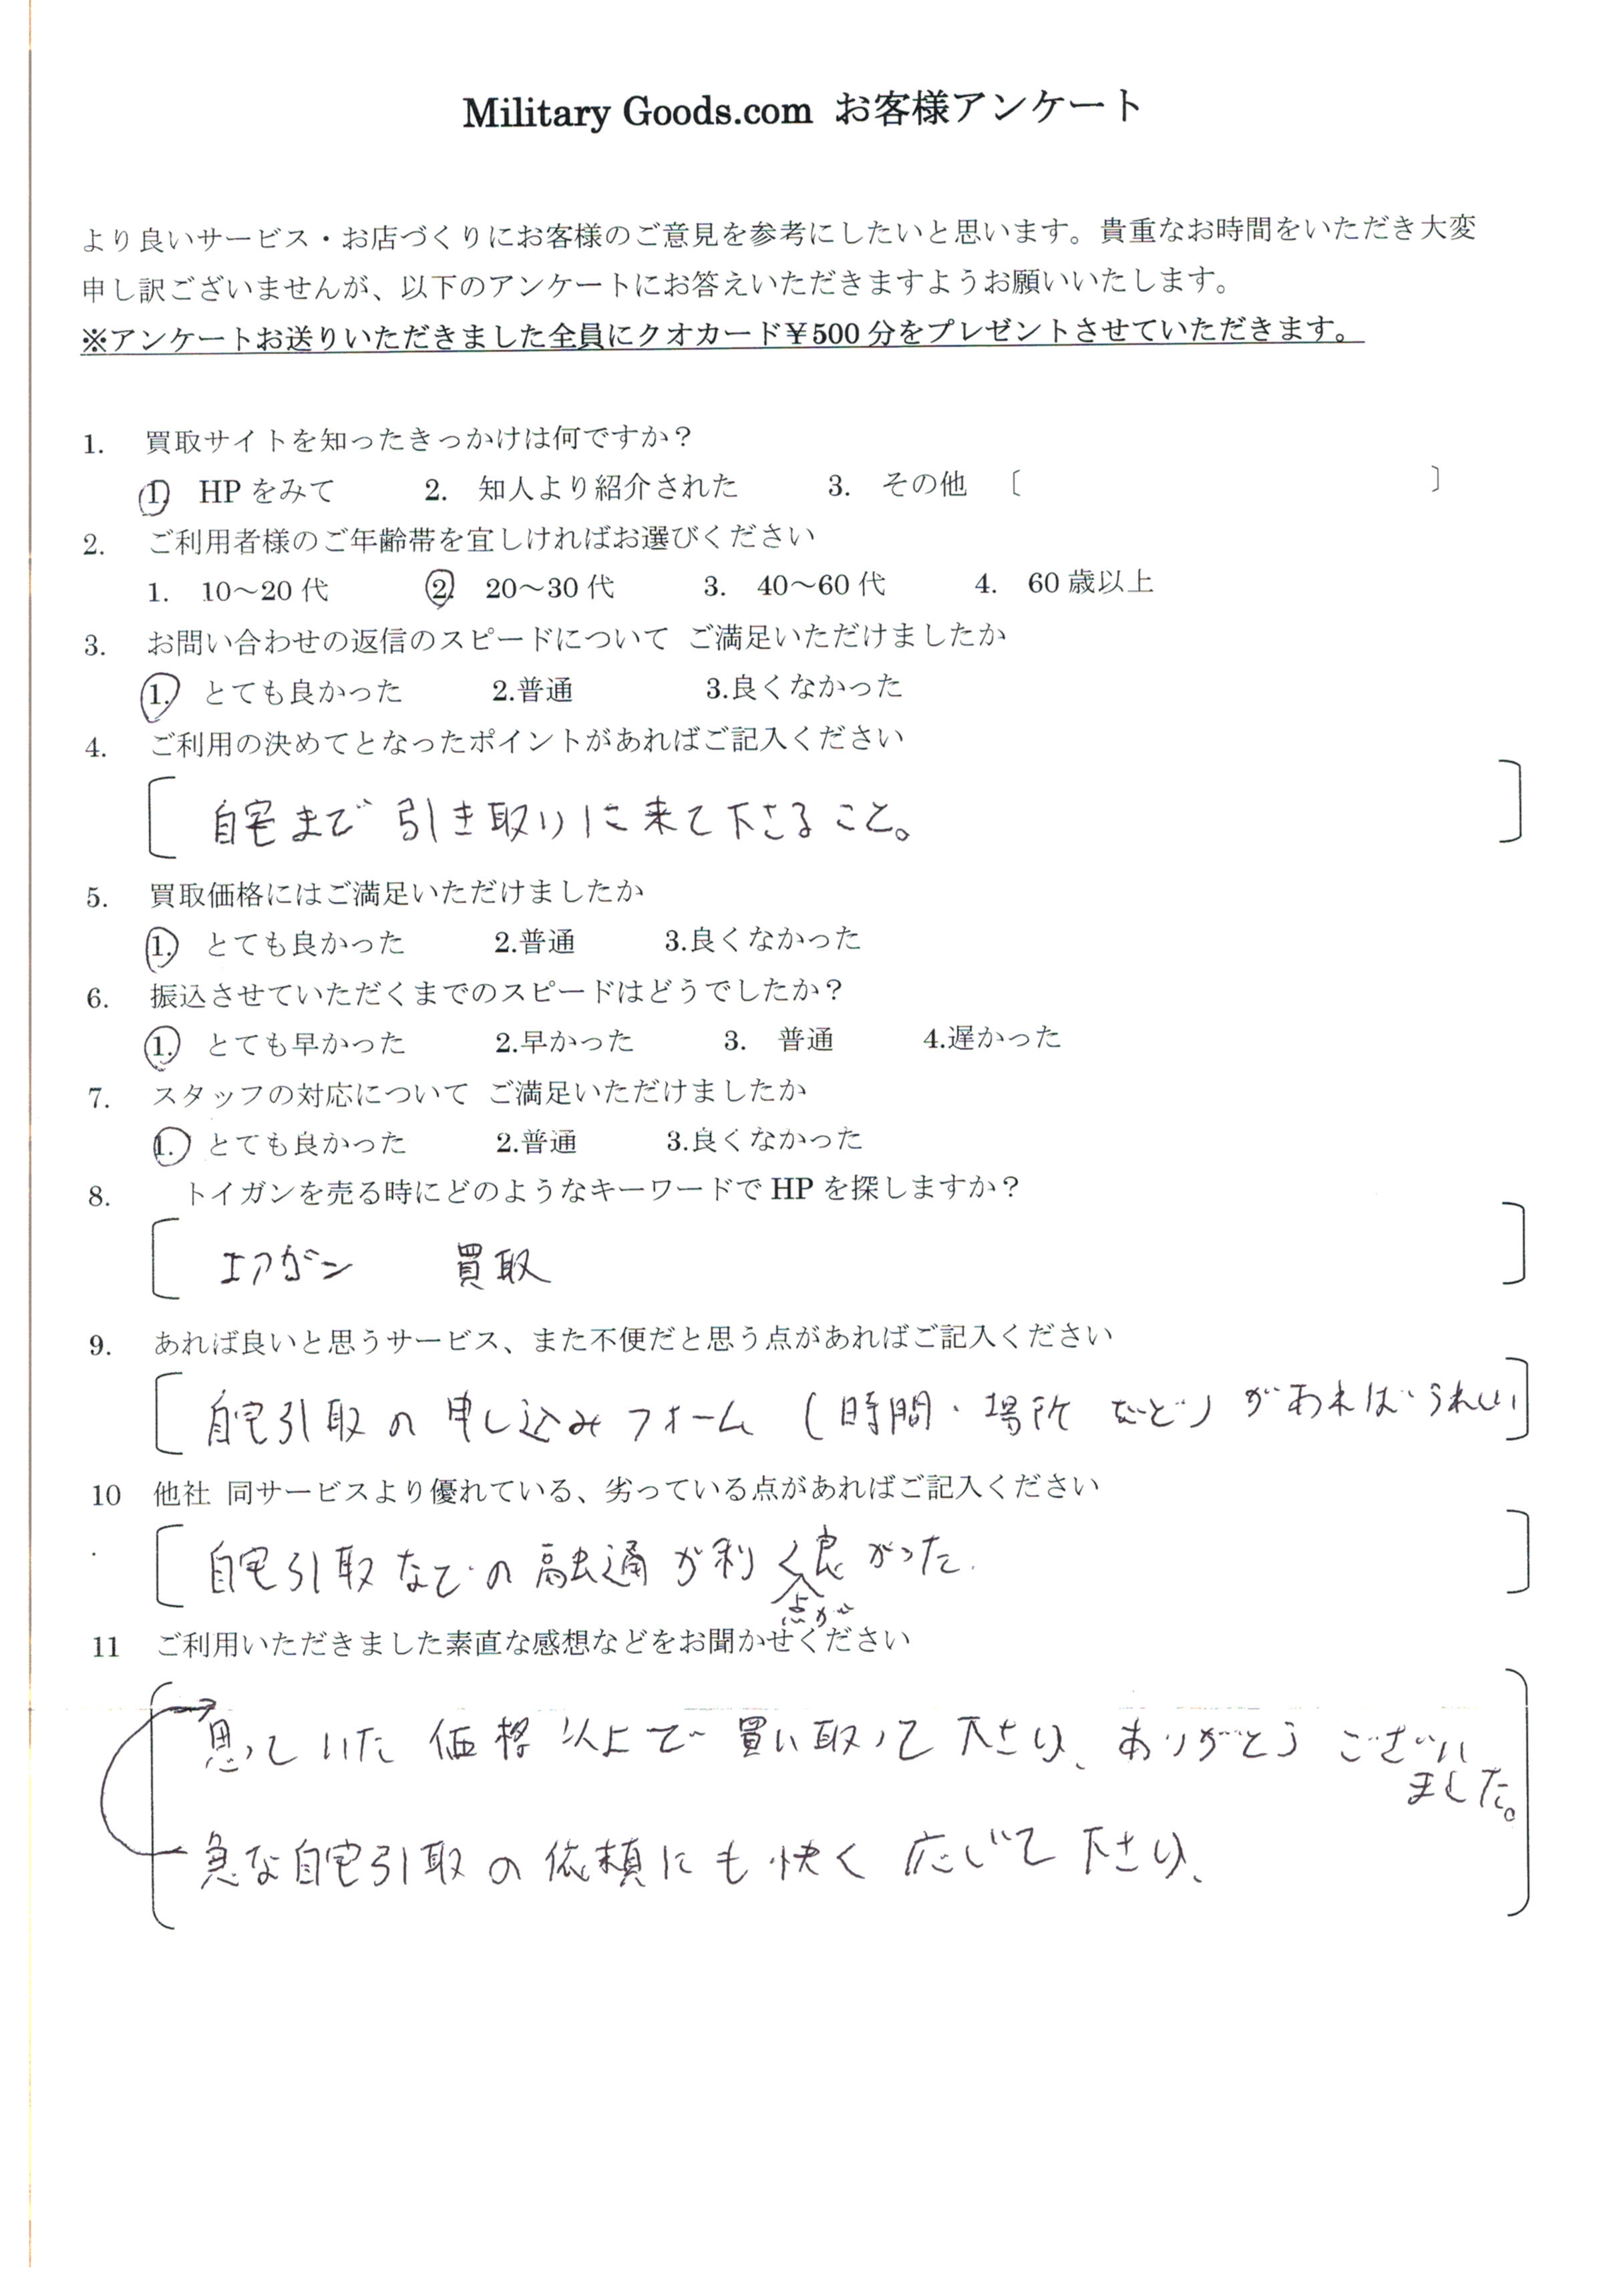 Military Goods.com お客様アンケート
より良いサービス・お店づくりにお客様のご意見を参考にしたいと思います。貴重なお時間をいただき大変
申し訳ございませんが、以下のアンケートにお答えいただきますようお願いいたします。
※アンケートお送りいただきました全員にクオカード¥500分をプレゼントさせていただきます。
1. 買取サイトを知ったきっかけは何ですか？
1. HPをみて 2. 知人より紹介された 3. その他 〔 〕
2. ご利用者様のご年齢帯を宜しければお選びください
1. 10～20代 2. 20～30代 3. 40～60代 4. 60歳以上
3. お問い合わせの返信のスピードについて ご満足いただけましたか
1. とても良かった 2.普通 3.良くなかった
4. ご利用の決めてとなったポイントがあればご記入ください
自宅まで引き取りに来て下さること。
5. 買取価格にはご満足いただけましたか
1. とても良かった 2.普通 3.良くなかった
6. 振込させていただくまでのスピードはどうでしたか？
1. とても早かった 2.早かった 3. 普通 4.遅かった
7. スタッフの対応について ご満足いただけましたか
1. とても良かった 2.普通 3.良くなかった
8. トイガンを売る時にどのようなキーワードでHPを探しますか？
エアガン 買取
9. あれば良いと思うサービス、また不便だと思う点があればご記入ください
自宅引取の申し込みフォーム (時間・場所 など) があればうれしい
10 他社 同サービスより優れている、劣っている点があればご記入ください
. 自宅引取などの融通が利く良かった.
点が
11 ご利用いただきました素直な感想などをお聞かせください
思っていた価格以上で買い取って下さり、ありがとうござい
ました。
急な自宅引取の依頼にも快く応じて下さり、